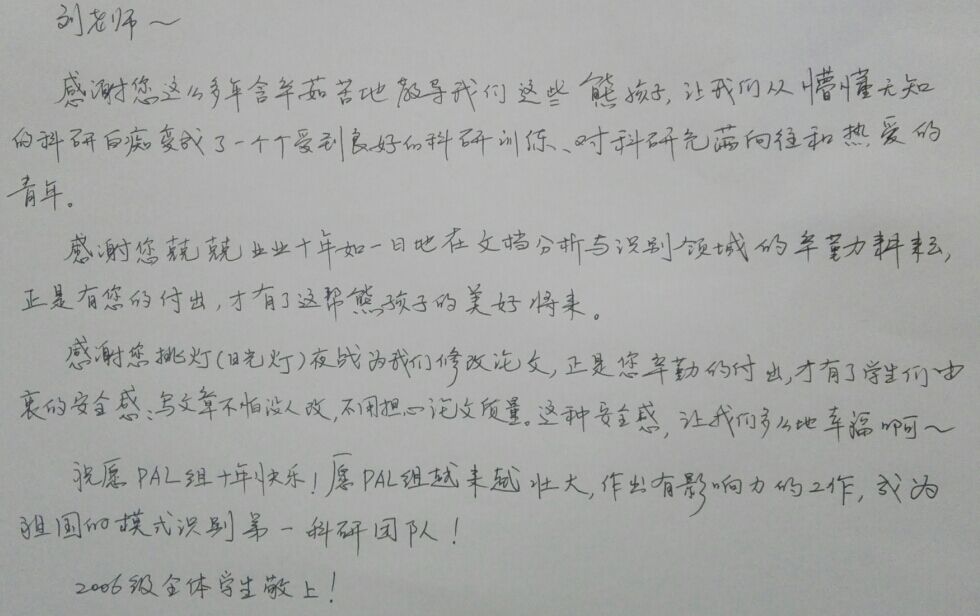 刘老师～
感谢您这么多年含辛茹苦地教导我们这些熊孩子,让我们从懵懂无知
的科研白痴变成了一个个受到良好的科研训练、对科研充满向往和热爱的
青年。
感谢您兢兢业业十年如一日地在文档分析与识别领域的辛勤耕耘,
正是有您的付出,才有了这帮熊孩子的美好将来。
感谢您挑灯(日光灯)夜战为我们修改论文,正是您辛勤的付出,才有了学生们由
衷的安全感:写文章不怕没人改,不用担心论文质量。这种安全感,让我们多么地幸福啊～
祝愿PAL组十年快乐!愿PAL组越来越壮大,作出有影响力的工作,成为
祖国的模式识别第一科研团队!
2006级全体学生敬上!